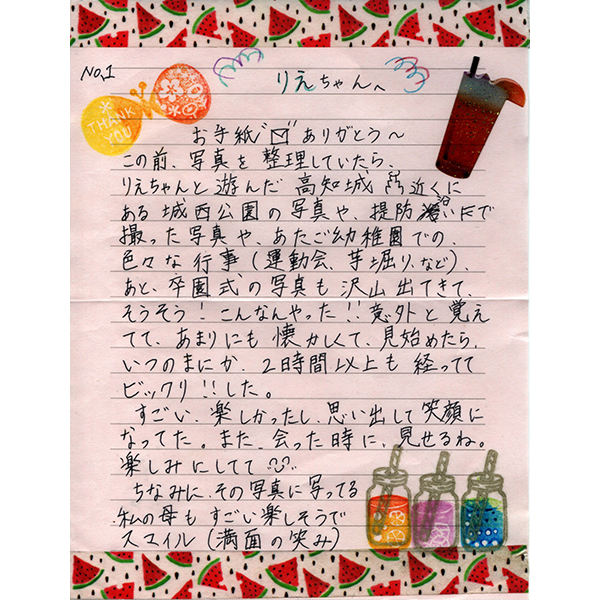 No,1
りえちゃんへ
THANK YOU
お手紙ありがとう〜
この前、写真を整理していたら、
りえちゃんと遊んだ高知城近くに
ある城西公園の写真や、堤防沿いで
撮った写真や、あたご幼稚園での、
色々な行事(運動会、芋堀り、など)、
あと、卒園式の写真も沢山出てきて、
そうそう!こんなんやった!!意外と覚え
てて、あまりにも懐かしくて、見始めたら、
いつのまにか、2時間以上も経ってて
ビックリ!!した。
すごい、楽しかったし、思い出して笑顔に
なってた。また、会った時に、見せるね。
楽しみにしてて
ちなみに、その写真に写ってる
私の母もすごい楽しそうで
スマイル(満面の笑み)